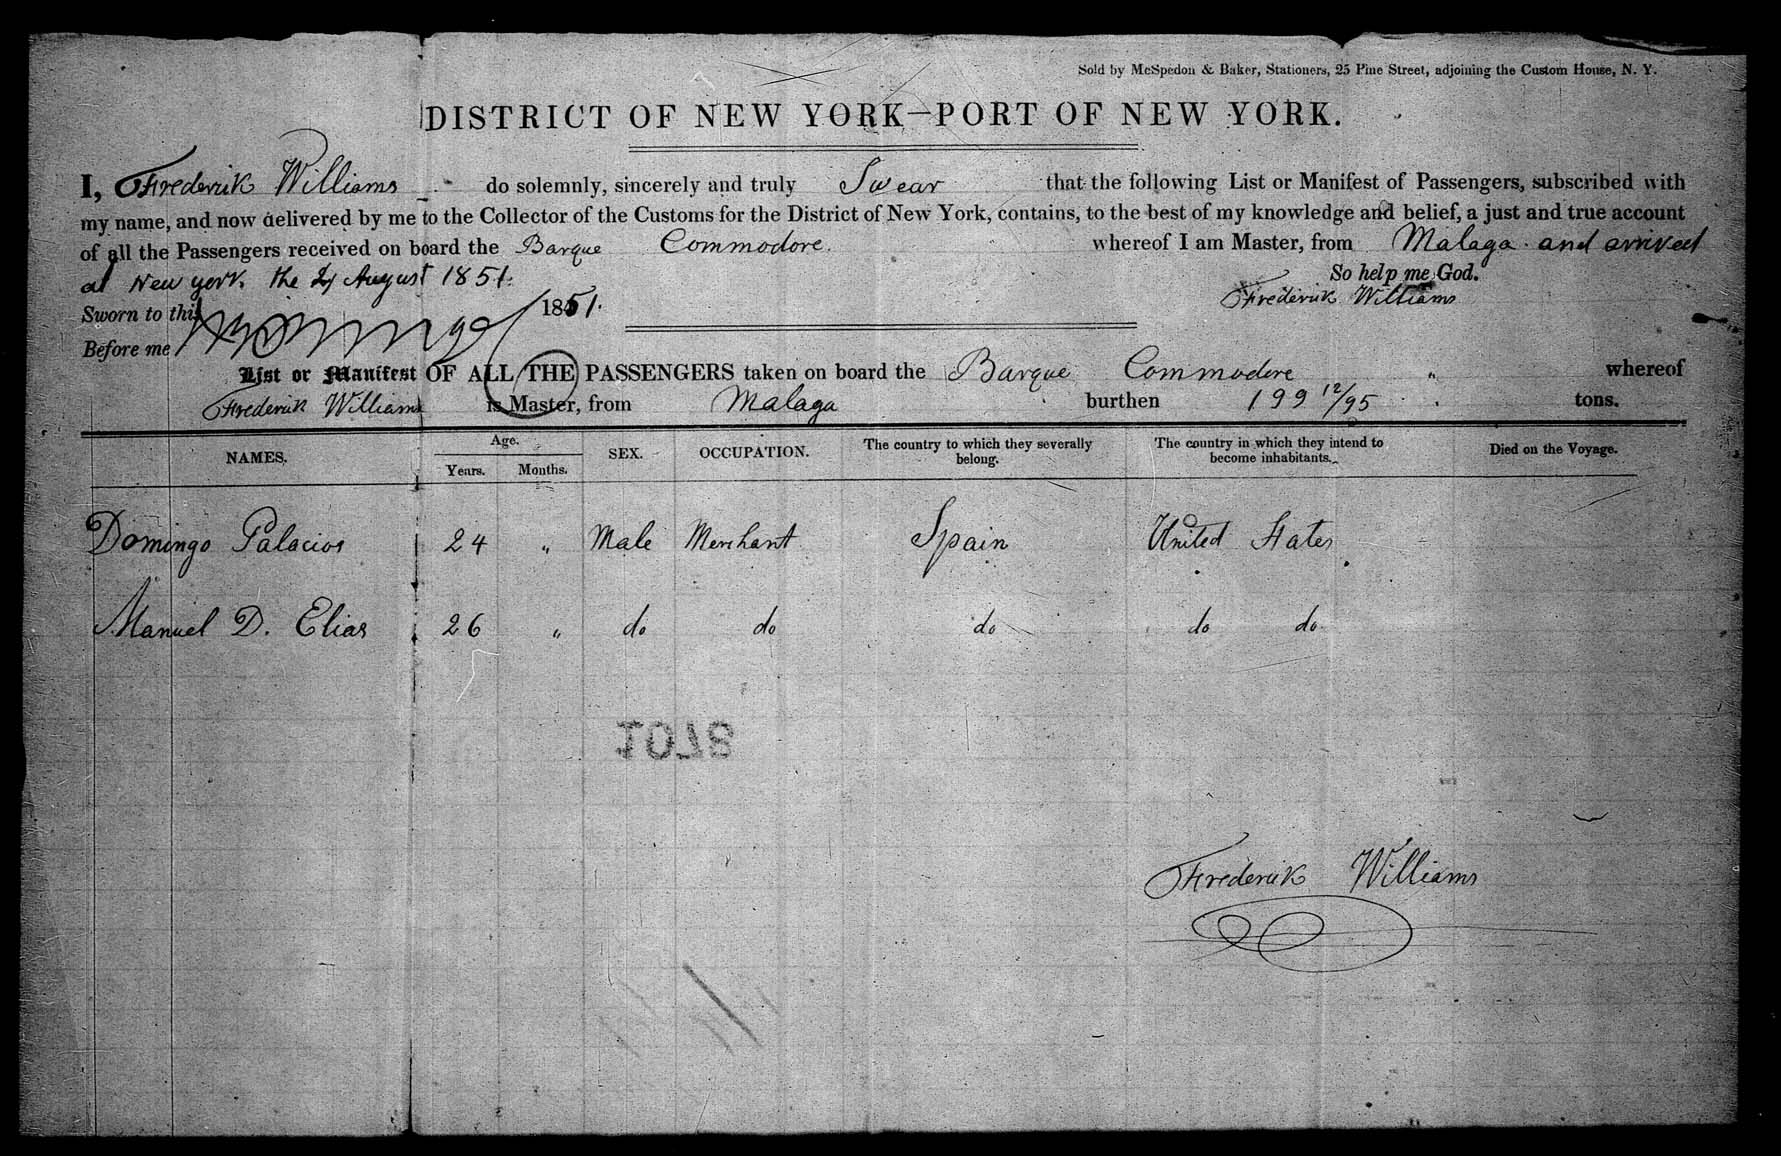 Sold by McSpedon & Baker, Stationers, 25 Pine Street, adjoining the Custom House, N. Y.
DISTRICT OF NEW YORK—PORT OF NEW YORK.
I, Frederick Williams do solemnly, sincerely and truly Swear that the following List or Manifest of Passengers, subscribed with
my name, and now delivered by me to the Collector of the Customs for the District of New York, contains, to the best of my knowledge and belief, a just and true account
of all the Passengers received on board the Barque Commodore. whereof I am Master, from Malaga. and arrived
at New york. the August 1851.
So help me God.
Sworn to this 1851.
Frederick Williams
Before me
List or Manifest OF ALL THE PASSENGERS taken on board the Barque Commodore " whereof
Frederick Williams is Master, from Malaga burthen 199 12/95 tons.
NAMES. Age. Years. Months. SEX. OCCUPATION. The country to which they severally belong. The country in which they intend to become inhabitants. Died on the Voyage.
Domingo Palacios 24 " Male Merchant Spain United States
Manuel D. Elias 26 " do do do do do
1078
Frederick Williams